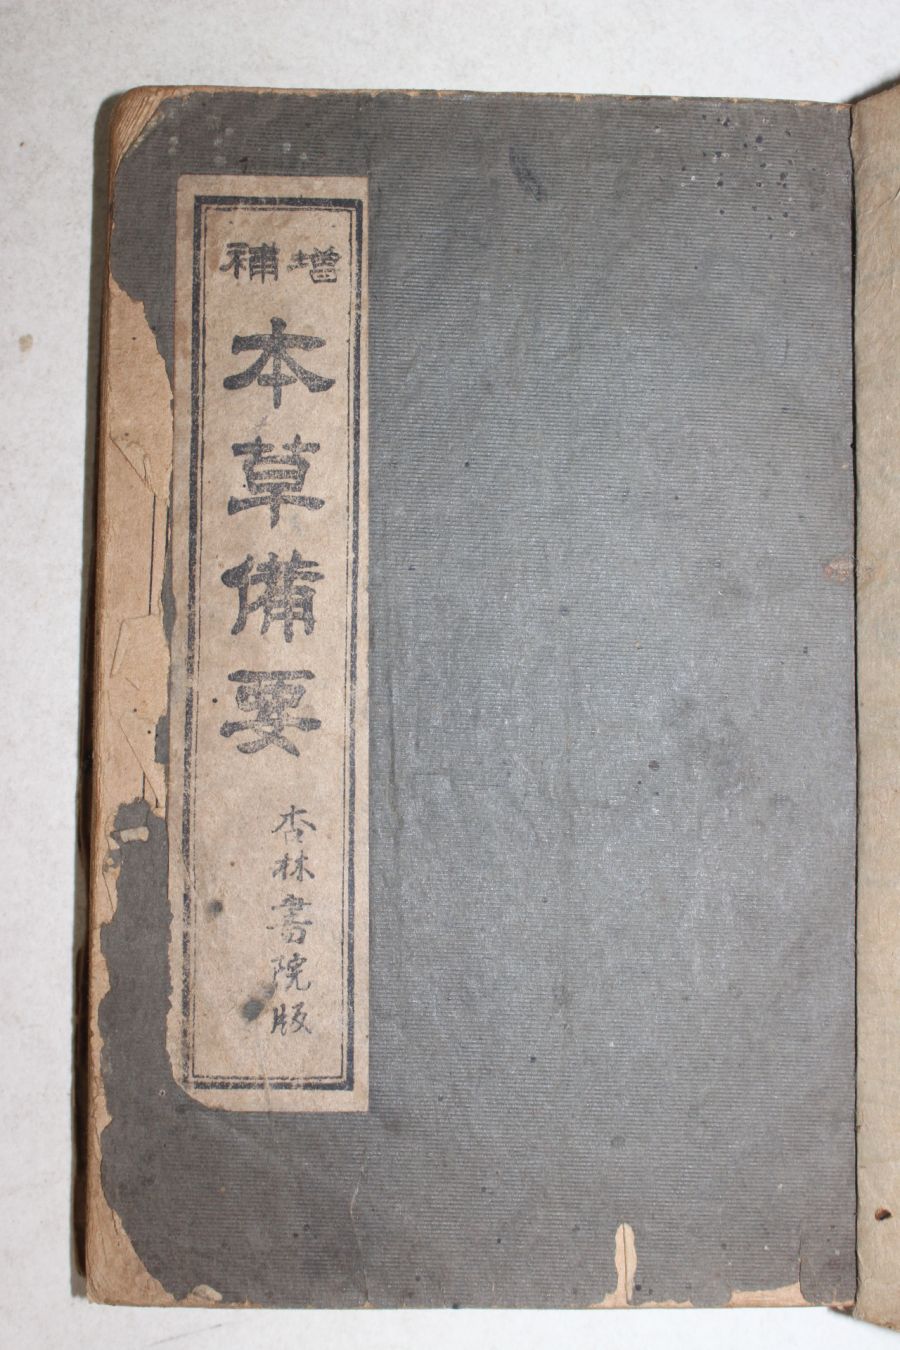 增補
本草備要
杏林書院版